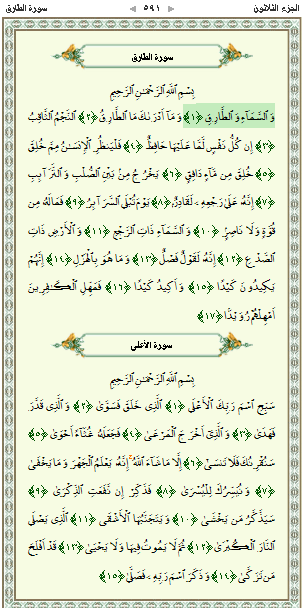 الجزء الثلاثون ٥٩١ سورة الطارق
سورة الطارق
بِسْمِ ٱللَّهِ ٱلرَّحْمَٰنِ ٱلرَّحِيمِ
وَٱلسَّمَآءِ وَٱلطَّارِقِ ﴿١﴾ وَمَآ أَدْرَىٰكَ مَا ٱلطَّارِقُ ﴿٢﴾ ٱلنَّجْمُ ٱلثَّاقِبُ
﴿٣﴾ إِن كُلُّ نَفْسٍ لَّمَّا عَلَيْهَا حَافِظٌ ﴿٤﴾ فَلْيَنظُرِ ٱلْإِنسَٰنُ مِمَّ خُلِقَ
﴿٥﴾ خُلِقَ مِن مَّآءٍ دَافِقٍ ﴿٦﴾ يَخْرُجُ مِنۢ بَيْنِ ٱلصُّلْبِ وَٱلتَّرَآئِبِ
﴿٧﴾ إِنَّهُۥ عَلَىٰ رَجْعِهِۦ لَقَادِرٌ ﴿٨﴾ يَوْمَ تُبْلَى ٱلسَّرَآئِرُ ﴿٩﴾ فَمَا لَهُۥ مِن
قُوَّةٍ وَلَا نَاصِرٍ ﴿١٠﴾ وَٱلسَّمَآءِ ذَاتِ ٱلرَّجْعِ ﴿١١﴾ وَٱلْأَرْضِ ذَاتِ
ٱلصَّدْعِ ﴿١٢﴾ إِنَّهُۥ لَقَوْلٌ فَصْلٌ ﴿١٣﴾ وَمَا هُوَ بِٱلْهَزْلِ ﴿١٤﴾ إِنَّهُمْ
يَكِيدُونَ كَيْدًا ﴿١٥﴾ وَأَكِيدُ كَيْدًا ﴿١٦﴾ فَمَهِّلِ ٱلْكَٰفِرِينَ
أَمْهِلْهُمْ رُوَيْدًۢا ﴿١٧﴾
سورة الأعلى
بِسْمِ ٱللَّهِ ٱلرَّحْمَٰنِ ٱلرَّحِيمِ
سَبِّحِ ٱسْمَ رَبِّكَ ٱلْأَعْلَى ﴿١﴾ ٱلَّذِى خَلَقَ فَسَوَّىٰ ﴿٢﴾ وَٱلَّذِى قَدَّرَ
فَهَدَىٰ ﴿٣﴾ وَٱلَّذِىٓ أَخْرَجَ ٱلْمَرْعَىٰ ﴿٤﴾ فَجَعَلَهُۥ غُثَآءً أَحْوَىٰ ﴿٥﴾
سَنُقْرِئُكَ فَلَا تَنسَىٰٓ ﴿٦﴾ إِلَّا مَا شَآءَ ٱللَّهُ ۚ إِنَّهُۥ يَعْلَمُ ٱلْجَهْرَ وَمَا يَخْفَىٰ
﴿٧﴾ وَنُيَسِّرُكَ لِلْيُسْرَىٰ ﴿٨﴾ فَذَكِّرْ إِن نَّفَعَتِ ٱلذِّكْرَىٰ ﴿٩﴾
سَيَذَّكَّرُ مَن يَخْشَىٰ ﴿١٠﴾ وَيَتَجَنَّبُهَا ٱلْأَشْقَى ﴿١١﴾ ٱلَّذِى يَصْلَى
ٱلنَّارَ ٱلْكُبْرَىٰ ﴿١٢﴾ ثُمَّ لَا يَمُوتُ فِيهَا وَلَا يَحْيَىٰ ﴿١٣﴾ قَدْ أَفْلَحَ
مَن تَزَكَّىٰ ﴿١٤﴾ وَذَكَرَ ٱسْمَ رَبِّهِۦ فَصَلَّىٰ ﴿١٥﴾